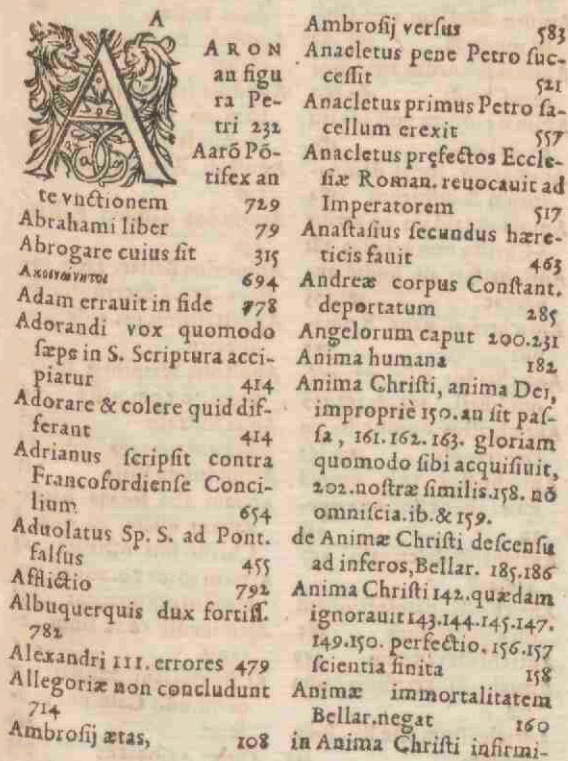 A
AARON
an figu
ra Pe-
tri 232
Aarõ Põ-
tifex an
te vnctionem 729
Abrahami liber 79
Abrogare cuius sit 315
694
Adam errauit in fide 778
Adorandi vox quomodo
sæpe in S. Scriptura acci-
piatur 414
Adorare & colere quid dif-
ferant 414
Adrianus scripsit contra
Francofordiense Conci-
lium 654
Aduolatus Sp. S. ad Pont.
falsus 455
Afflictio 792
Albuquerquis dux fortiss.
782
Alexandri III. errores 479
Allegoriæ non concludunt
714
Ambrosij ætas, 108
Ambrosij versus 583
Anacletus pene Petro suc-
cessit 521
Anacletus primus Petro sa-
cellum erexit 557
Anacletus pręfectos Eccle-
siæ Roman. reuocauit ad
Imperatorem 517
Anastasius secundus hære-
ticis fauit 463
Andreæ corpus Constant.
deportatum 285
Angelorum caput 200.231
Anima humana 182
Anima Christi, anima Dei,
impropriè 150. an sit pas-
sa, 161.162.163. gloriam
quomodo sibi acquisiuit,
202. nostræ similis. 158. nõ
omniscia. ib. & 159.
de Animæ Christi descensu
ad inferos, Bellar. 185.186
Anima Christi 142. quædam
ignorauit 143.144.145.147.
149.150. perfectio. 156.157
scientia finita 158
Animæ immortalitatem
Bellar. negat 160
in Anima Christi infirmi-